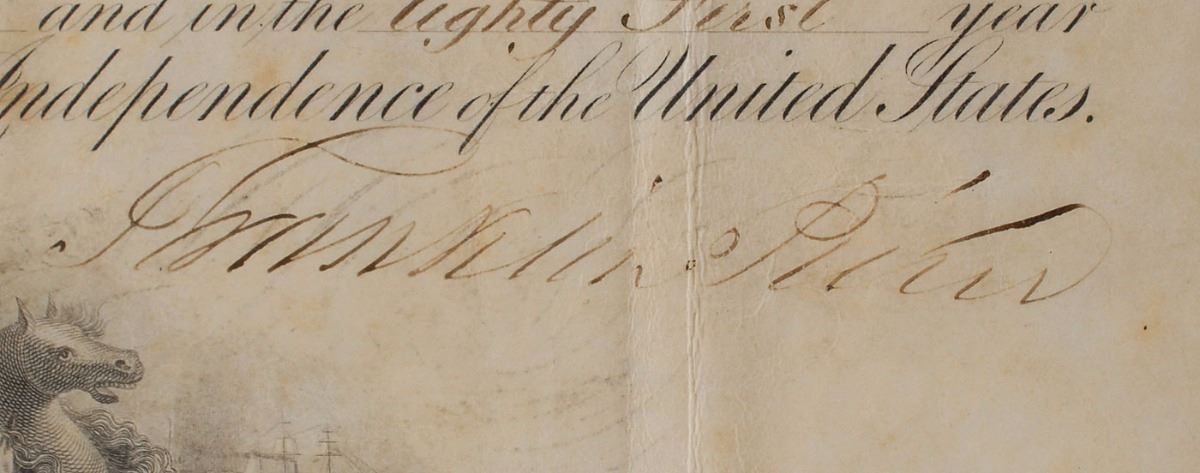 and in the Eighty First year
Independence of the United States.
Franklin Pierce